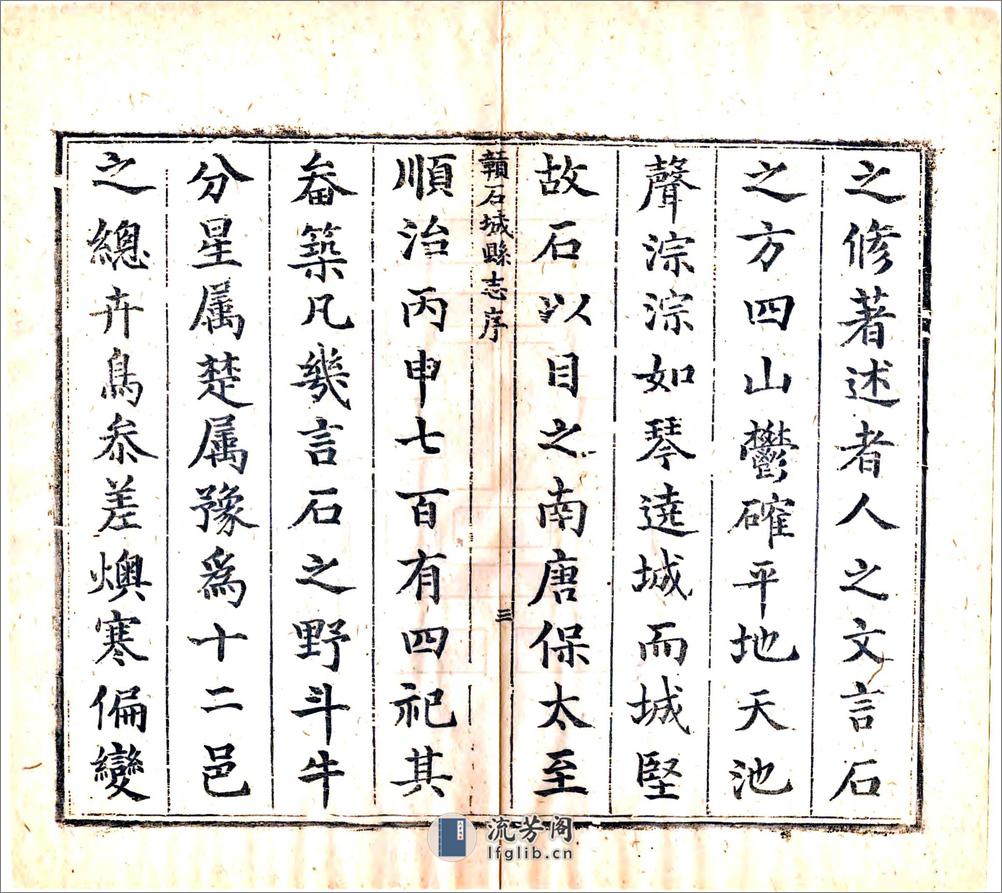 之修著述者人之文言石
之方四山鬱確平地天池
聲淙淙如琴遶城而城堅
故石以目之南唐保太至
贛石城縣志序
三
順治丙申七百有四祀其
畚築凡幾言石之野斗牛
分星属楚属豫為十二邑
之總卉鳥叅差燠寒偏變
流芳阁
lfglib.cn